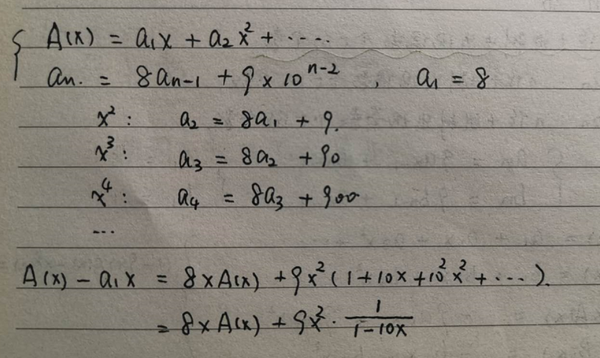 A(x) = a₁x + a₂x² + ‧‧‧‧
aₙ. = 8aₙ₋₁ + 9 × 10ⁿ⁻² , a₁ = 8
x² : a₂ = 8a₁ + 9.
x³ : a₃ = 8a₂ + 90
x⁴ : a₄ = 8a₃ + 900
...
A(x) - a₁x = 8xA(x) + 9x² (1 + 10x + 10²x² + ‧‧‧).
= 8xA(x) + 9x² · 1/(1-10x)